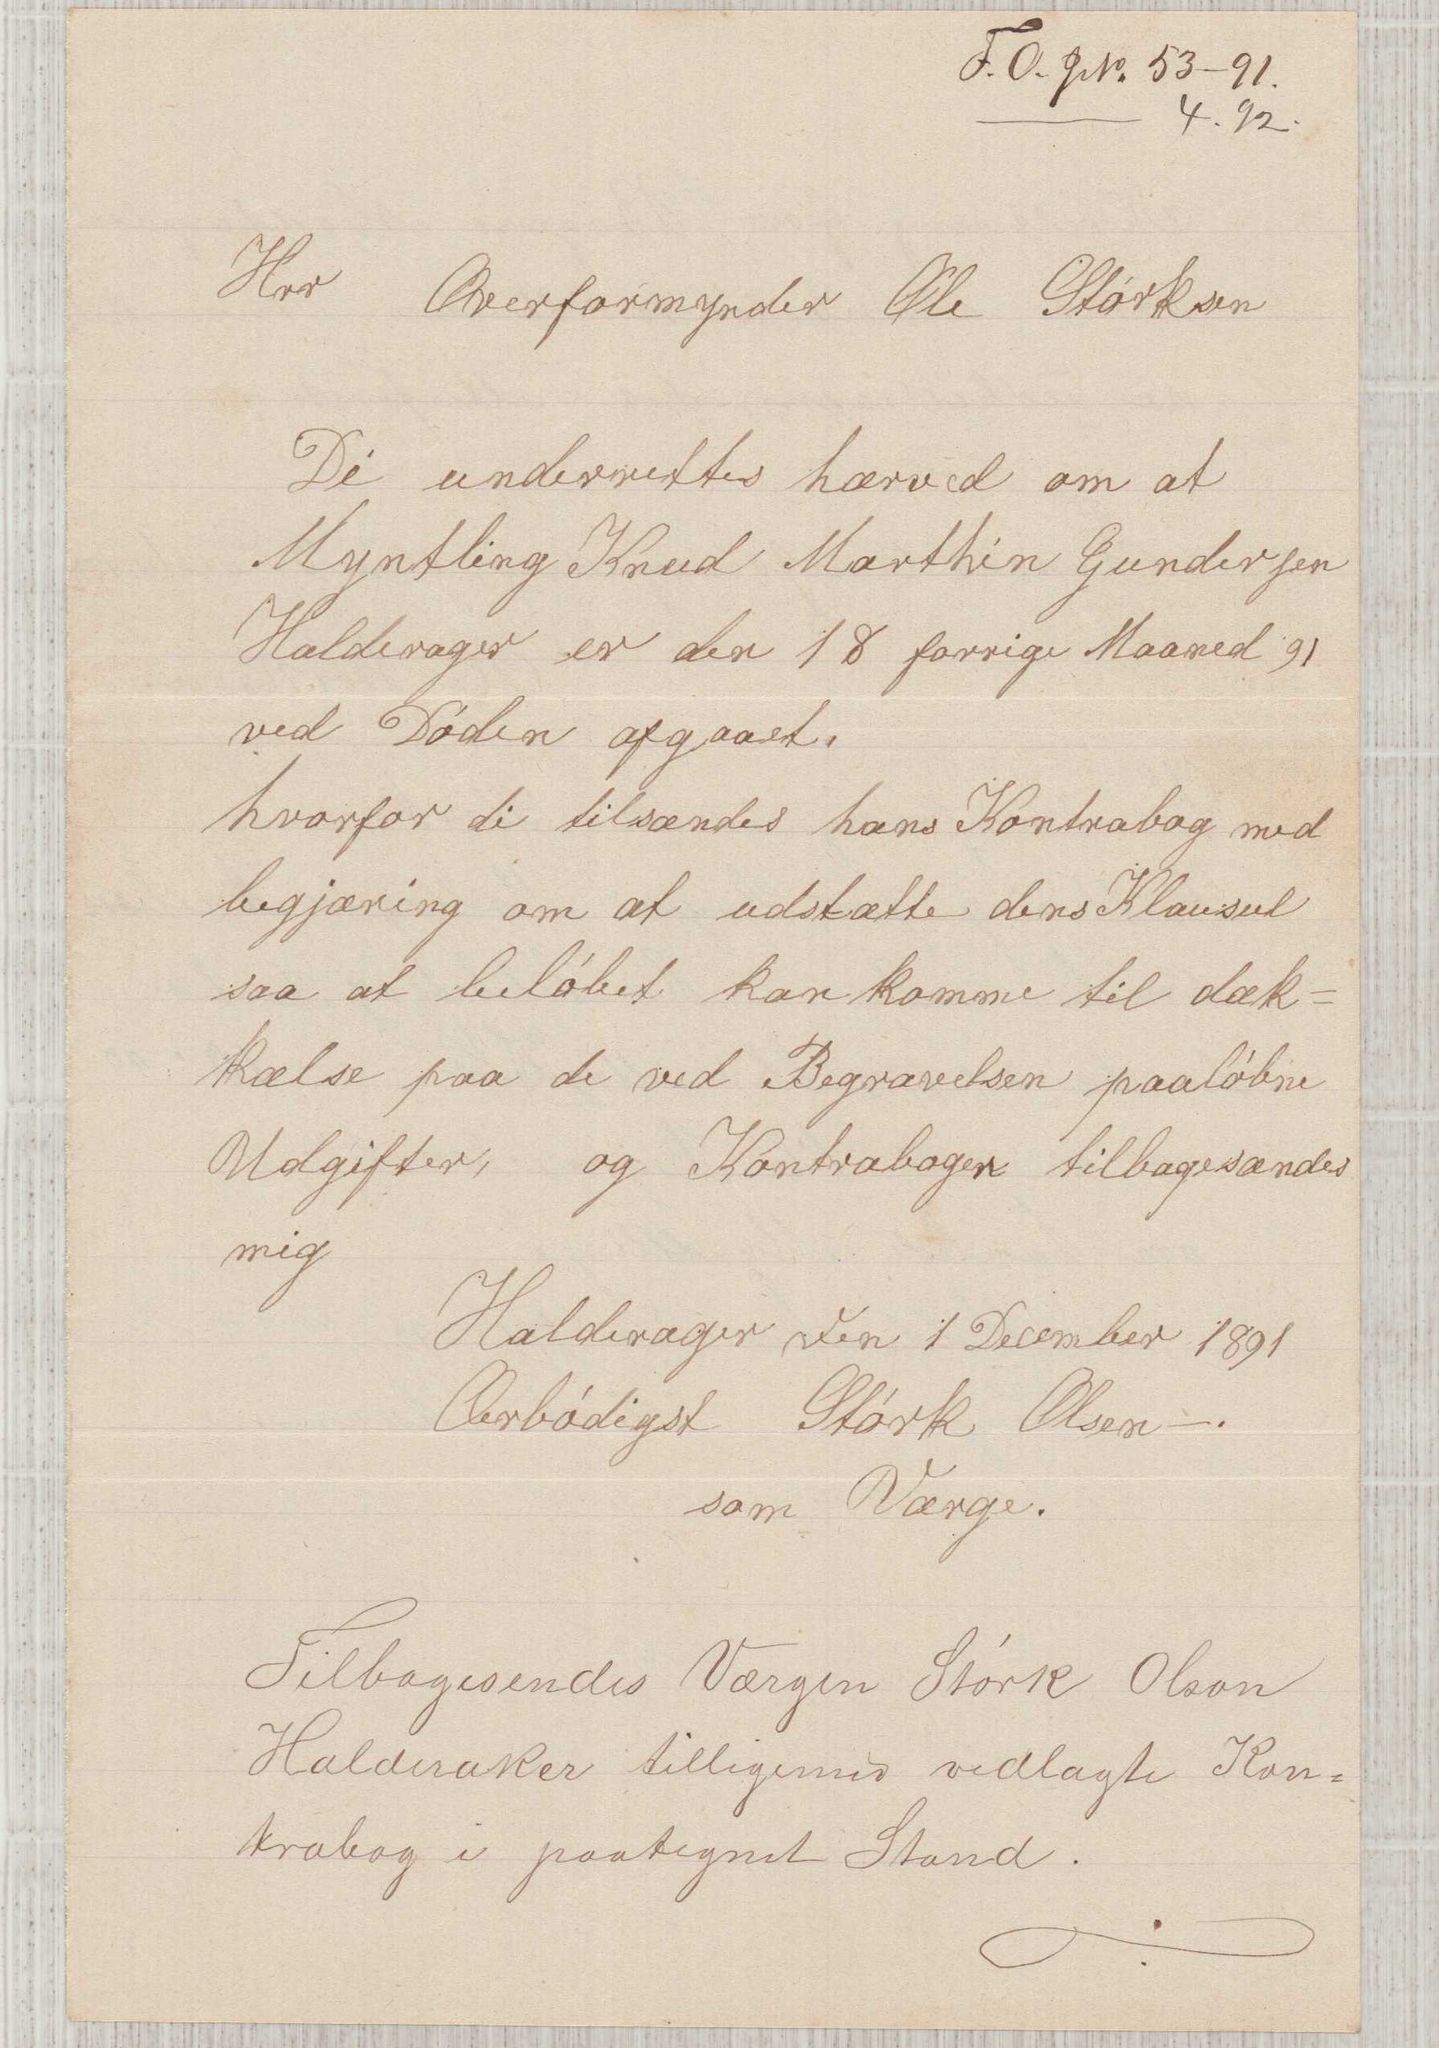 F. O. JNo. 53-91.
4. 92.
Hrr Overformynder Ole Störksen
Di underrettes hærved om at
Myntling Knud Marthin Gundersen
Halderager er den 18 forrige Maaned 91
ved Döden afgaaet.
hvorfor di tilsændes hans Kontrabog med
begjæring om at udstætte dens Klausul
saa at belöbet kan komme til dæk=
kælse paa de ved Begravelsen paalöbne
Udgifter, og Kontrabogen tilbagesændes
mig
Halderager den 1 December 1891
Ærbödigst Störk Olsen -.
som Værge.
Tilbagesendes Værgen Störk Olson
Halderaker tilligemed vedlagte Kon=
trabog i paategnet Stand.